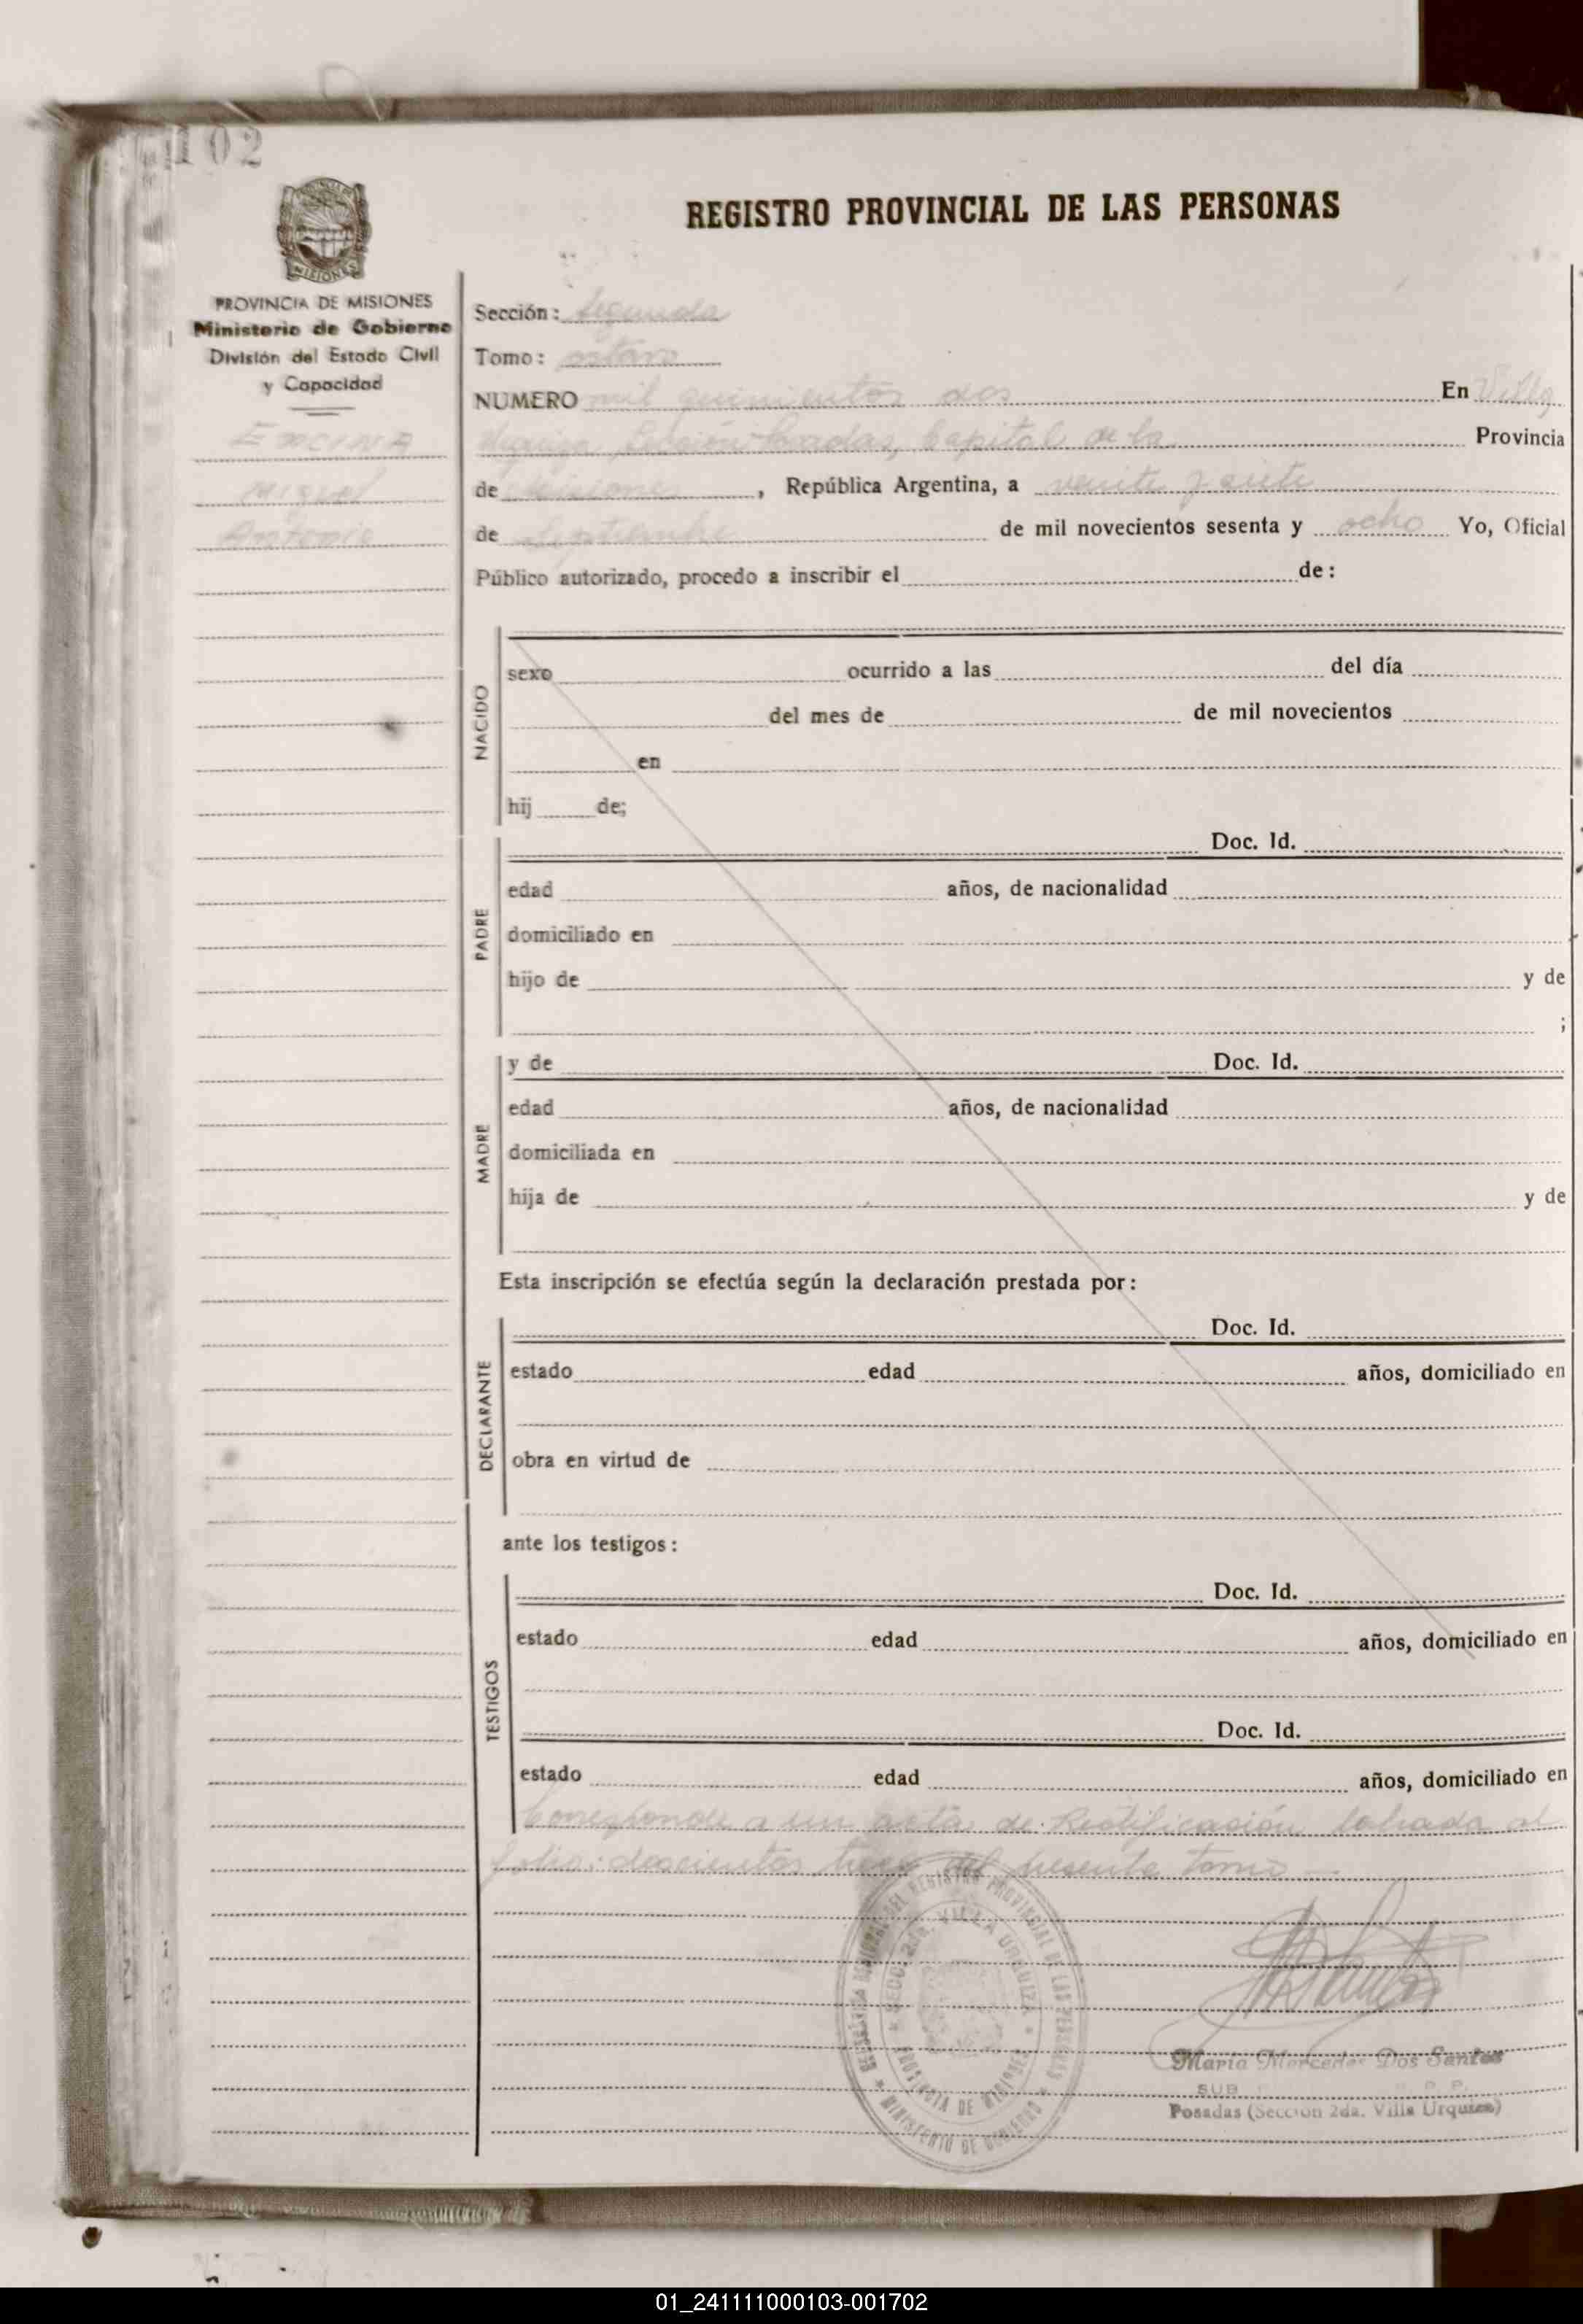 102
REGISTRO PROVINCIAL DE LAS PERSONAS
MISIONES
PROVINCIA DE MISIONES
Ministerio de Gobierno
División del Estado Civil
y Capacidad
ENCINA
Miguel
Antonio
Sección: Segunda
Tomo: octavo
NUMERO mil quinientos dos En Villa
Urquiza, Sección Posadas, Capital de la Provincia
de Misiones, República Argentina, a veinte y siete
de Septiembre de mil novecientos sesenta y ocho Yo, Oficial
Público autorizado, procedo a inscribir el de:
NACIDO
sexo ocurrido a las del día
del mes de de mil novecientos
en
hij de;
PADRE
Doc. Id.
edad años, de nacionalidad
domiciliado en
hijo de y de
;
MADRE
y de Doc. Id.
edad años, de nacionalidad
domiciliada en
hija de y de
Esta inscripción se efectúa según la declaración prestada por:
DECLARANTE
Doc. Id.
estado edad años, domiciliado en
obra en virtud de
ante los testigos:
TESTIGOS
Doc. Id.
estado edad años, domiciliado en
Doc. Id.
estado edad años, domiciliado en
Corresponde a un acta de Rectificasión labrada al
folio: doscientos del presente tomo —
DEL REGISTRO PROVINCIAL DE LAS PERSONAS
SECC. 2da. VILLA URQUIZA
PROVINCIA DE MISIONES
MINISTERIO DE GOBIERNO
María Mercedes Dos Santos
SUB
Posadas (Sección 2da. Villa Urquiza)
01_241111000103-001702